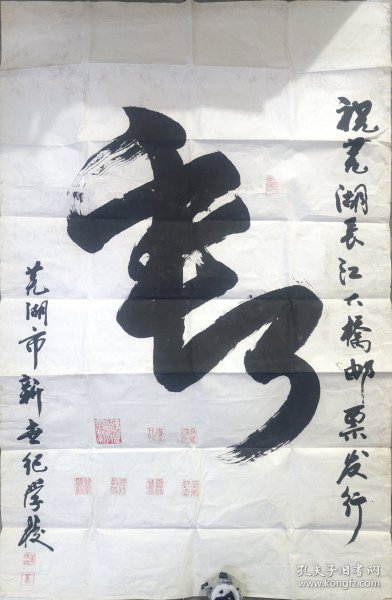 祝芜湖长江大橋邮票发行
寿
芜湖市新世纪学校
孔夫子旧书网